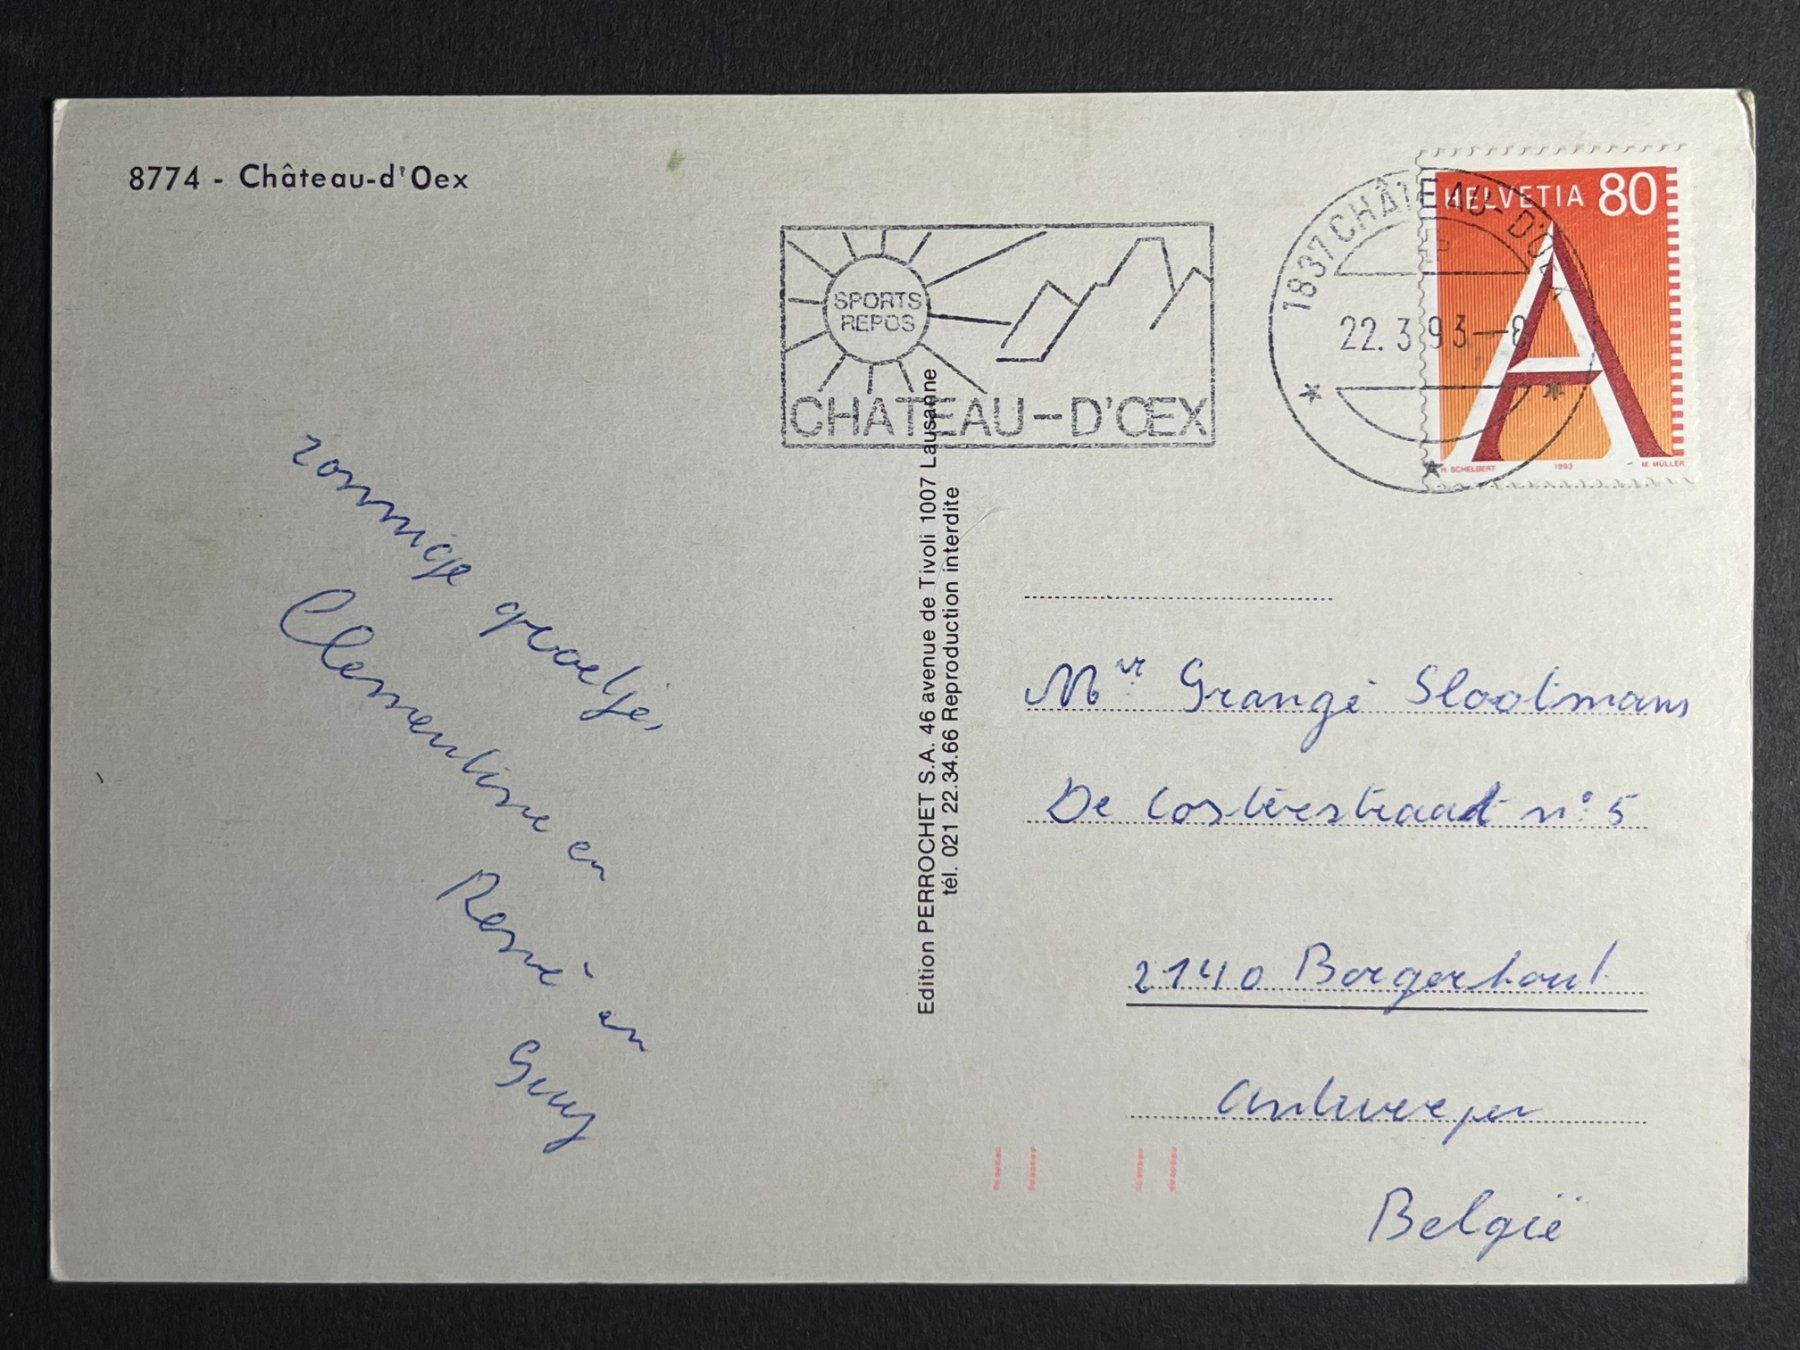 8774 - Château-d'Oex
SPORTS
REPOS
CHATEAU-D'ŒX
1837 CHÂTEAU-D'OEX
22.3.93-8
HELVETIA 80
A
H. SCHELBERT 1993 M. MÜLLER
zonnige groetjes
Clementine en
René en
Guy
Edition PERROCHET S.A. 46 avenue de Tivoli 1007 Lausanne
tél. 021 22.34.66 Reproduction interdite
Mvr Grangé Slootmans
De Costerstraat n° 5
2140 Borgerhout
Antwerpen
België